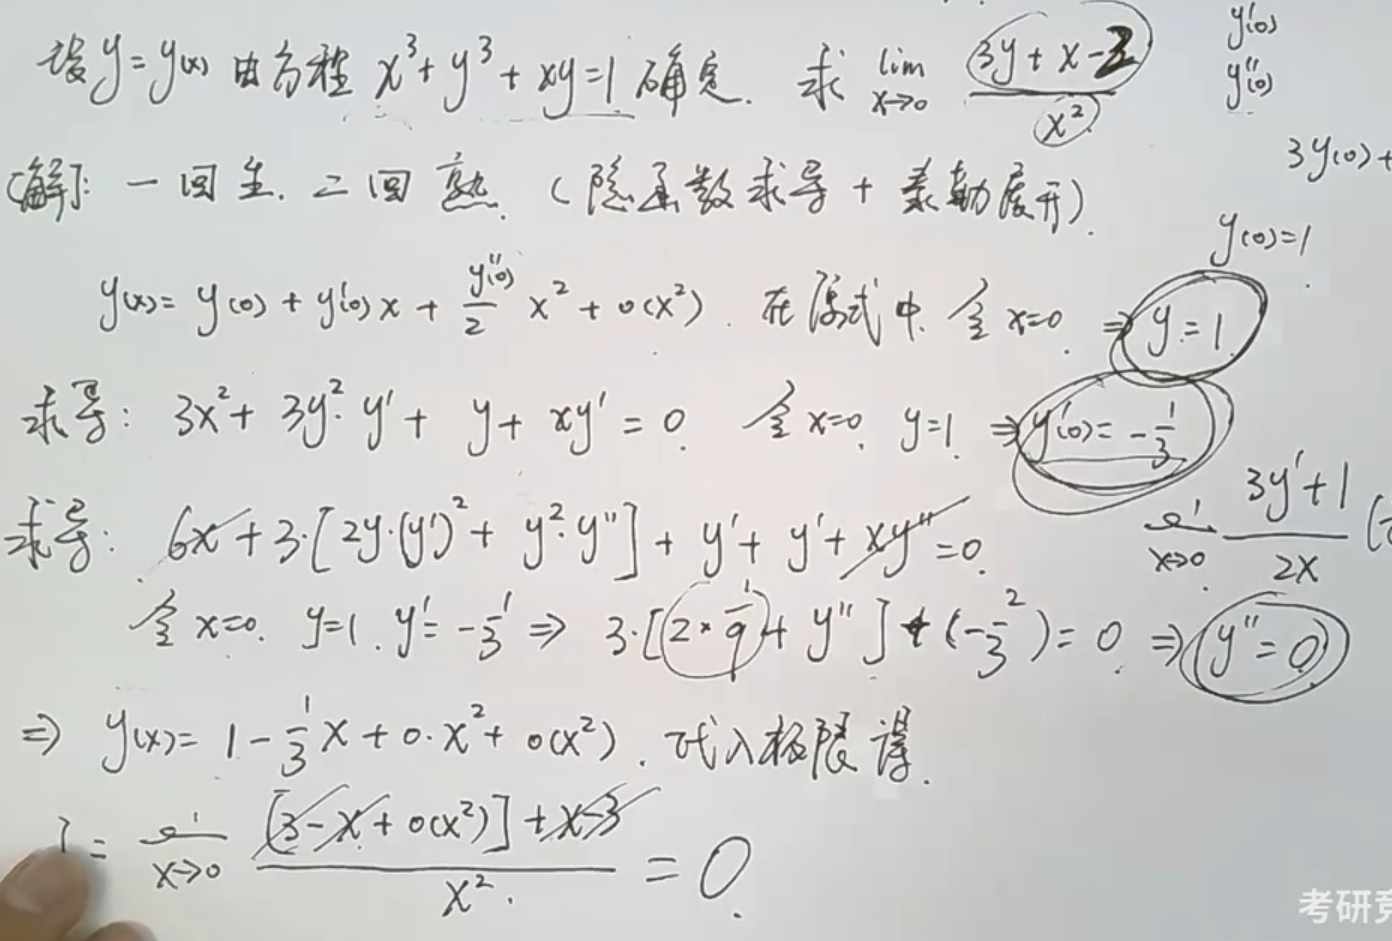 设y=y(x)由方程 x³+y³+xy=1确定. 求 lim x→0 (3y+x-3)/x²
y'(0)
y''(0)
3y(0)+
[解]: 一回生.二回熟.(隐函数求导+泰勒展开).
y(0)=1
y(x)=y(0)+y'(0)x+y''(0)/2 x²+o(x²). 在原式中.令x=0. ⇒ y=1.
求导: 3x²+3y²·y'+y+xy'=0. 令x=0. y=1. ⇒ y'(0)=-1/3
lim x→0 (3y'+1)/2x
求导: 6x+3·[2y·(y')²+y²·y'']+y'+y'+xy''=0.
令x=0. y=1. y'=-1/3 ⇒ 3·[2*1/9+y'']+(-2/3)=0. ⇒ y''=0
⇒ y(x)=1-1/3x+0·x²+o(x²). 代入极限得.
I=lim x→0 ([3-x+o(x²)]+x-3)/x². =0.
考研竞